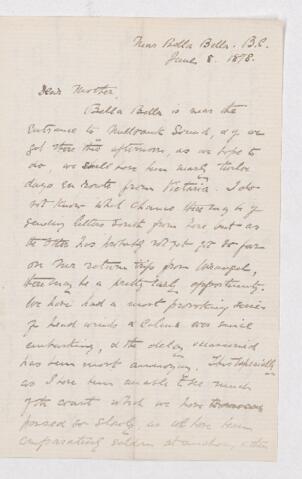 Near Bella Bella. B.C.
June 8. 1878.
Dear Mother,
Bella Bella is near the
Entrance to Millbank Sound, & if we
get there this afternoon, as we hope to
do, we shall have been nearly twelve
days en route from Victoria. I do
not know what chance there may be of
sending letters South from here but as
the Otter has probably not yet got so far
on her return trip from Wrangel,
there may be a pretty early opportunity.
We have had a most provoking series
of head winds & Calms ever since
embarking, & the delay occasioned
has been most annoying. This especially
as I have been unable to see much
of the coast which we have
passed so slowly, as we have been
comparatively seldom at anchor, & the